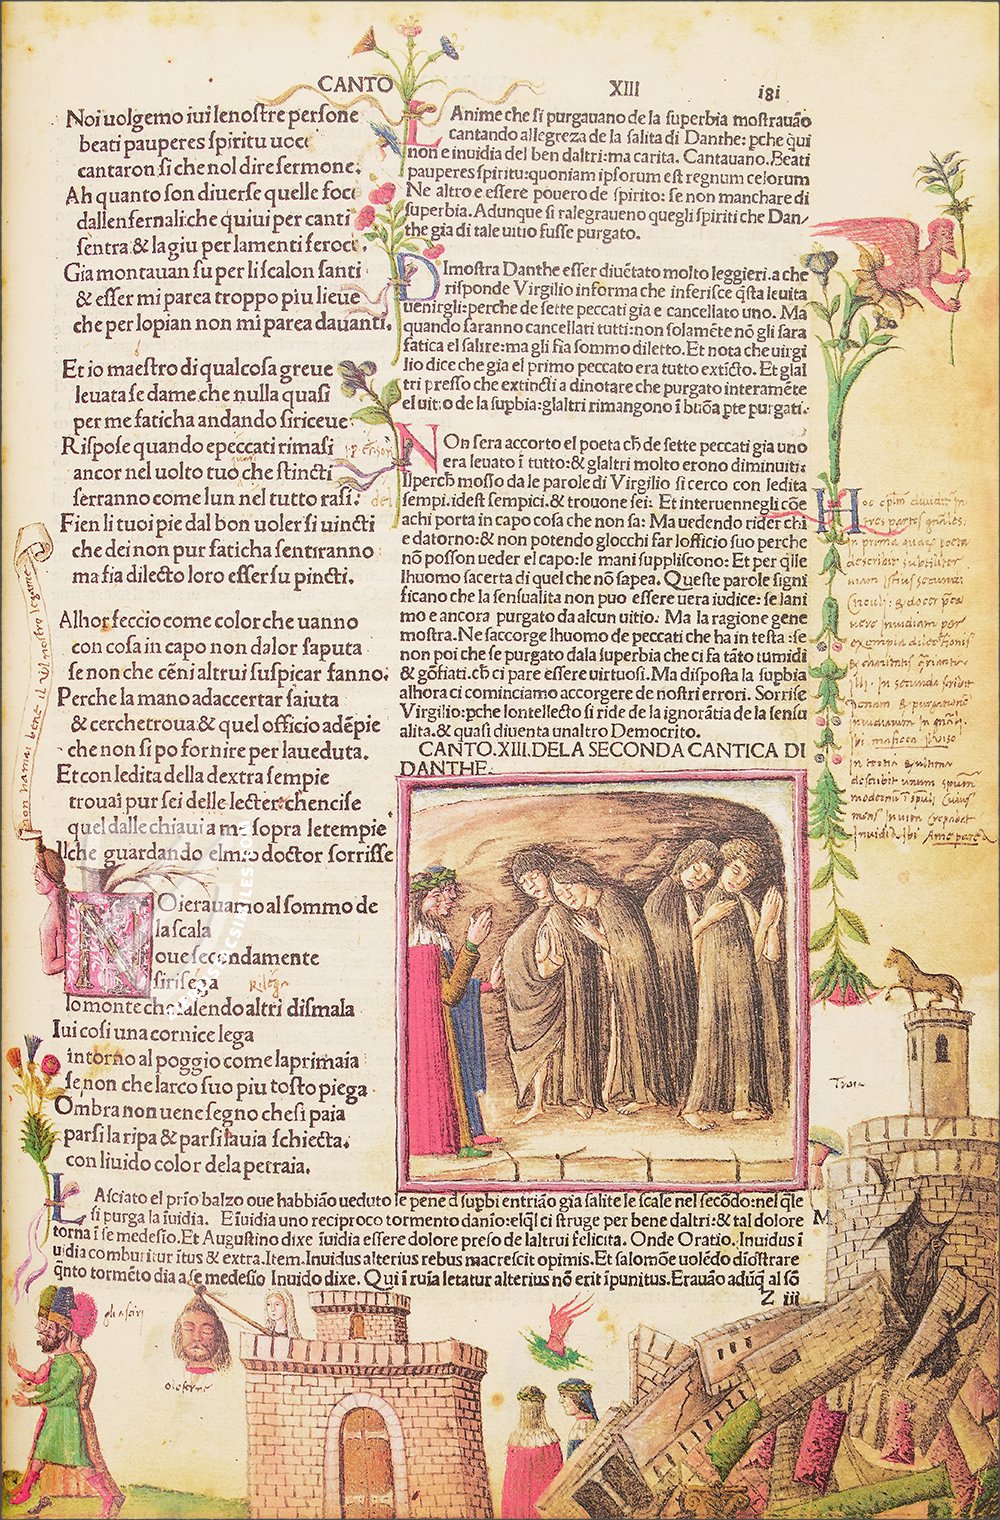 CANTO XIII 181
Noi uolgemo iui lenostre persone
beati pauperes spiritu uoce
cantaron si che nol dire sermone.
Ah quanto son diuerse quelle foce
dallenfernali:che quiui per canti
sentra & lagiu per lamenti feroci.
Gia montauan su per li scalon santi
& esser mi parea troppo piu lieue
che per lo pian non mi parea dauanti.
Et io maestro di qualcosa greue
leuata se da me che nulla quasi
per me faticha andando si riceue
Rispose quando e peccati rimasi
ancor nel uolto tuo che stincti
serranno come lun nel tutto rasi.
Fien li tuoi pie dal bon uoler si uincti
che dei non pur faticha sentiranno
ma fia dilecto loro esser su pincti.
Alhor feccio come color che uanno
con cosa in capo non dalor saputa
se non che cēni altrui suspicar fanno.
Perche la mano adaccertar saiuta
& cerche troua & quel officio adēpie
che non si po fornire per la ueduta.
Et con ledita della dextra sempie
trouai pur sei delle lecter chencise
quel dalle chiaui a me sopra le tempie
Ilche guardando el mio doctor sorrisse
NOi erauamo al sommo de
la scala
oue secondamente
si risega
lo monte che salendo altri dismala
Iui cosi una cornice lega
intorno al poggio come la primaia
se non che larco suo piu tosto piega
Ombra non ue ne segno che si paia
parsi la ripa & parsi la uia schiecta.
con liuido color de la petraia.
LAnime che si purgauano de la superbia mostrauāo
cantando allegreza de la salita di Danthe: pche qui
non e inuidia del ben daltri:ma carita. Cantauano.Beati
pauperes spiritu:quoniam ipsorum est regnum celorum
Ne altro e essere pouero de spirito: se non manchare di
superbia. Adunque si ralegraueno quegli spiriti che Dan
the gia di tale uitio fusse purgato.
DImostra Danthe esser diuētato molto leggieri. a che
risponde Virgilio informa che inferisce q̄sta leuita
uenirgli:perche de sette peccati gia e cancellato uno. Ma
quando saranno cancellati tutti:non solamēte nō gli sara
fatica el salire:ma gli fia sommo diletto.Et nota che uirgi
lio dice che gia el primo peccato era tutto exticto. Et glal
tri presso che extincti a dinotare che purgato interamēte
el uitio de la supbia:glaltri rimangono ī buōa pte purgati.
NOn sera accorto el poeta ch̄ de sette peccati gia uno
era leuato ī tutto:& glaltri molto erono diminuiti:
Ilperch̄ mosso da le parole di Virgilio si cerco con ledita
sempi.idest sempici.& trouone sei: Et interuennegli cōe
achi porta in capo cosa che non sa: Ma uedendo rider chi
e datorno:& non potendo glocchi far lofficio suo perche
nō posson ueder el capo:le mani suppliscono: Et per q̄lle
lhuomo sacerta di quel che nō sapea. Queste parole signi
ficano che la sensualita non puo essere uera iudice: se lani
mo e ancora purgato da alcun uitio. Ma la ragione gene
mostra. Ne saccorge lhuomo de peccati che ha in testa :se
non poi che se purgato dala superbia che ci fa tāto tumidi
& gōfiati.ch̄ ci pare essere uirtuosi. Ma disposta la supbia
alhora ci cominciamo accorgere de nostri errori. Sorrise
Virgilio:pche lontellecto si ride de la ignorātia de la sensu
alita.& quasi diuenta unaltro Democrito.
CANTO.XIII.DELA SECONDA CANTICA DI
DANTHE.
LAsciato el prīo balzo oue habbiāo ueduto le pene d supbi entriāo gia salite le scale nel secōdo:nel q̄le
si purga la īuidia. E īuidia uno reciproco tormento danīo:elq̄l ci struge per bene daltri:& tal dolore
torna ī se medesīo.Et Augustino dixe īuidia essere dolore preso de laltrui felicita. Onde Oratio. Inuidus ī
uidia comburitur ītus & extra.Item.Inuidus alterius rebus macrescit opimis.Et salomōe uolēdo dīostrare
q̄nto tormēto dia a se medesīo Inuido dixe. Qui ī ruia letatur alterius nō erit īpunitus.Erauāo adūq̄ al sō
M
Z iii
Troia
oloferne